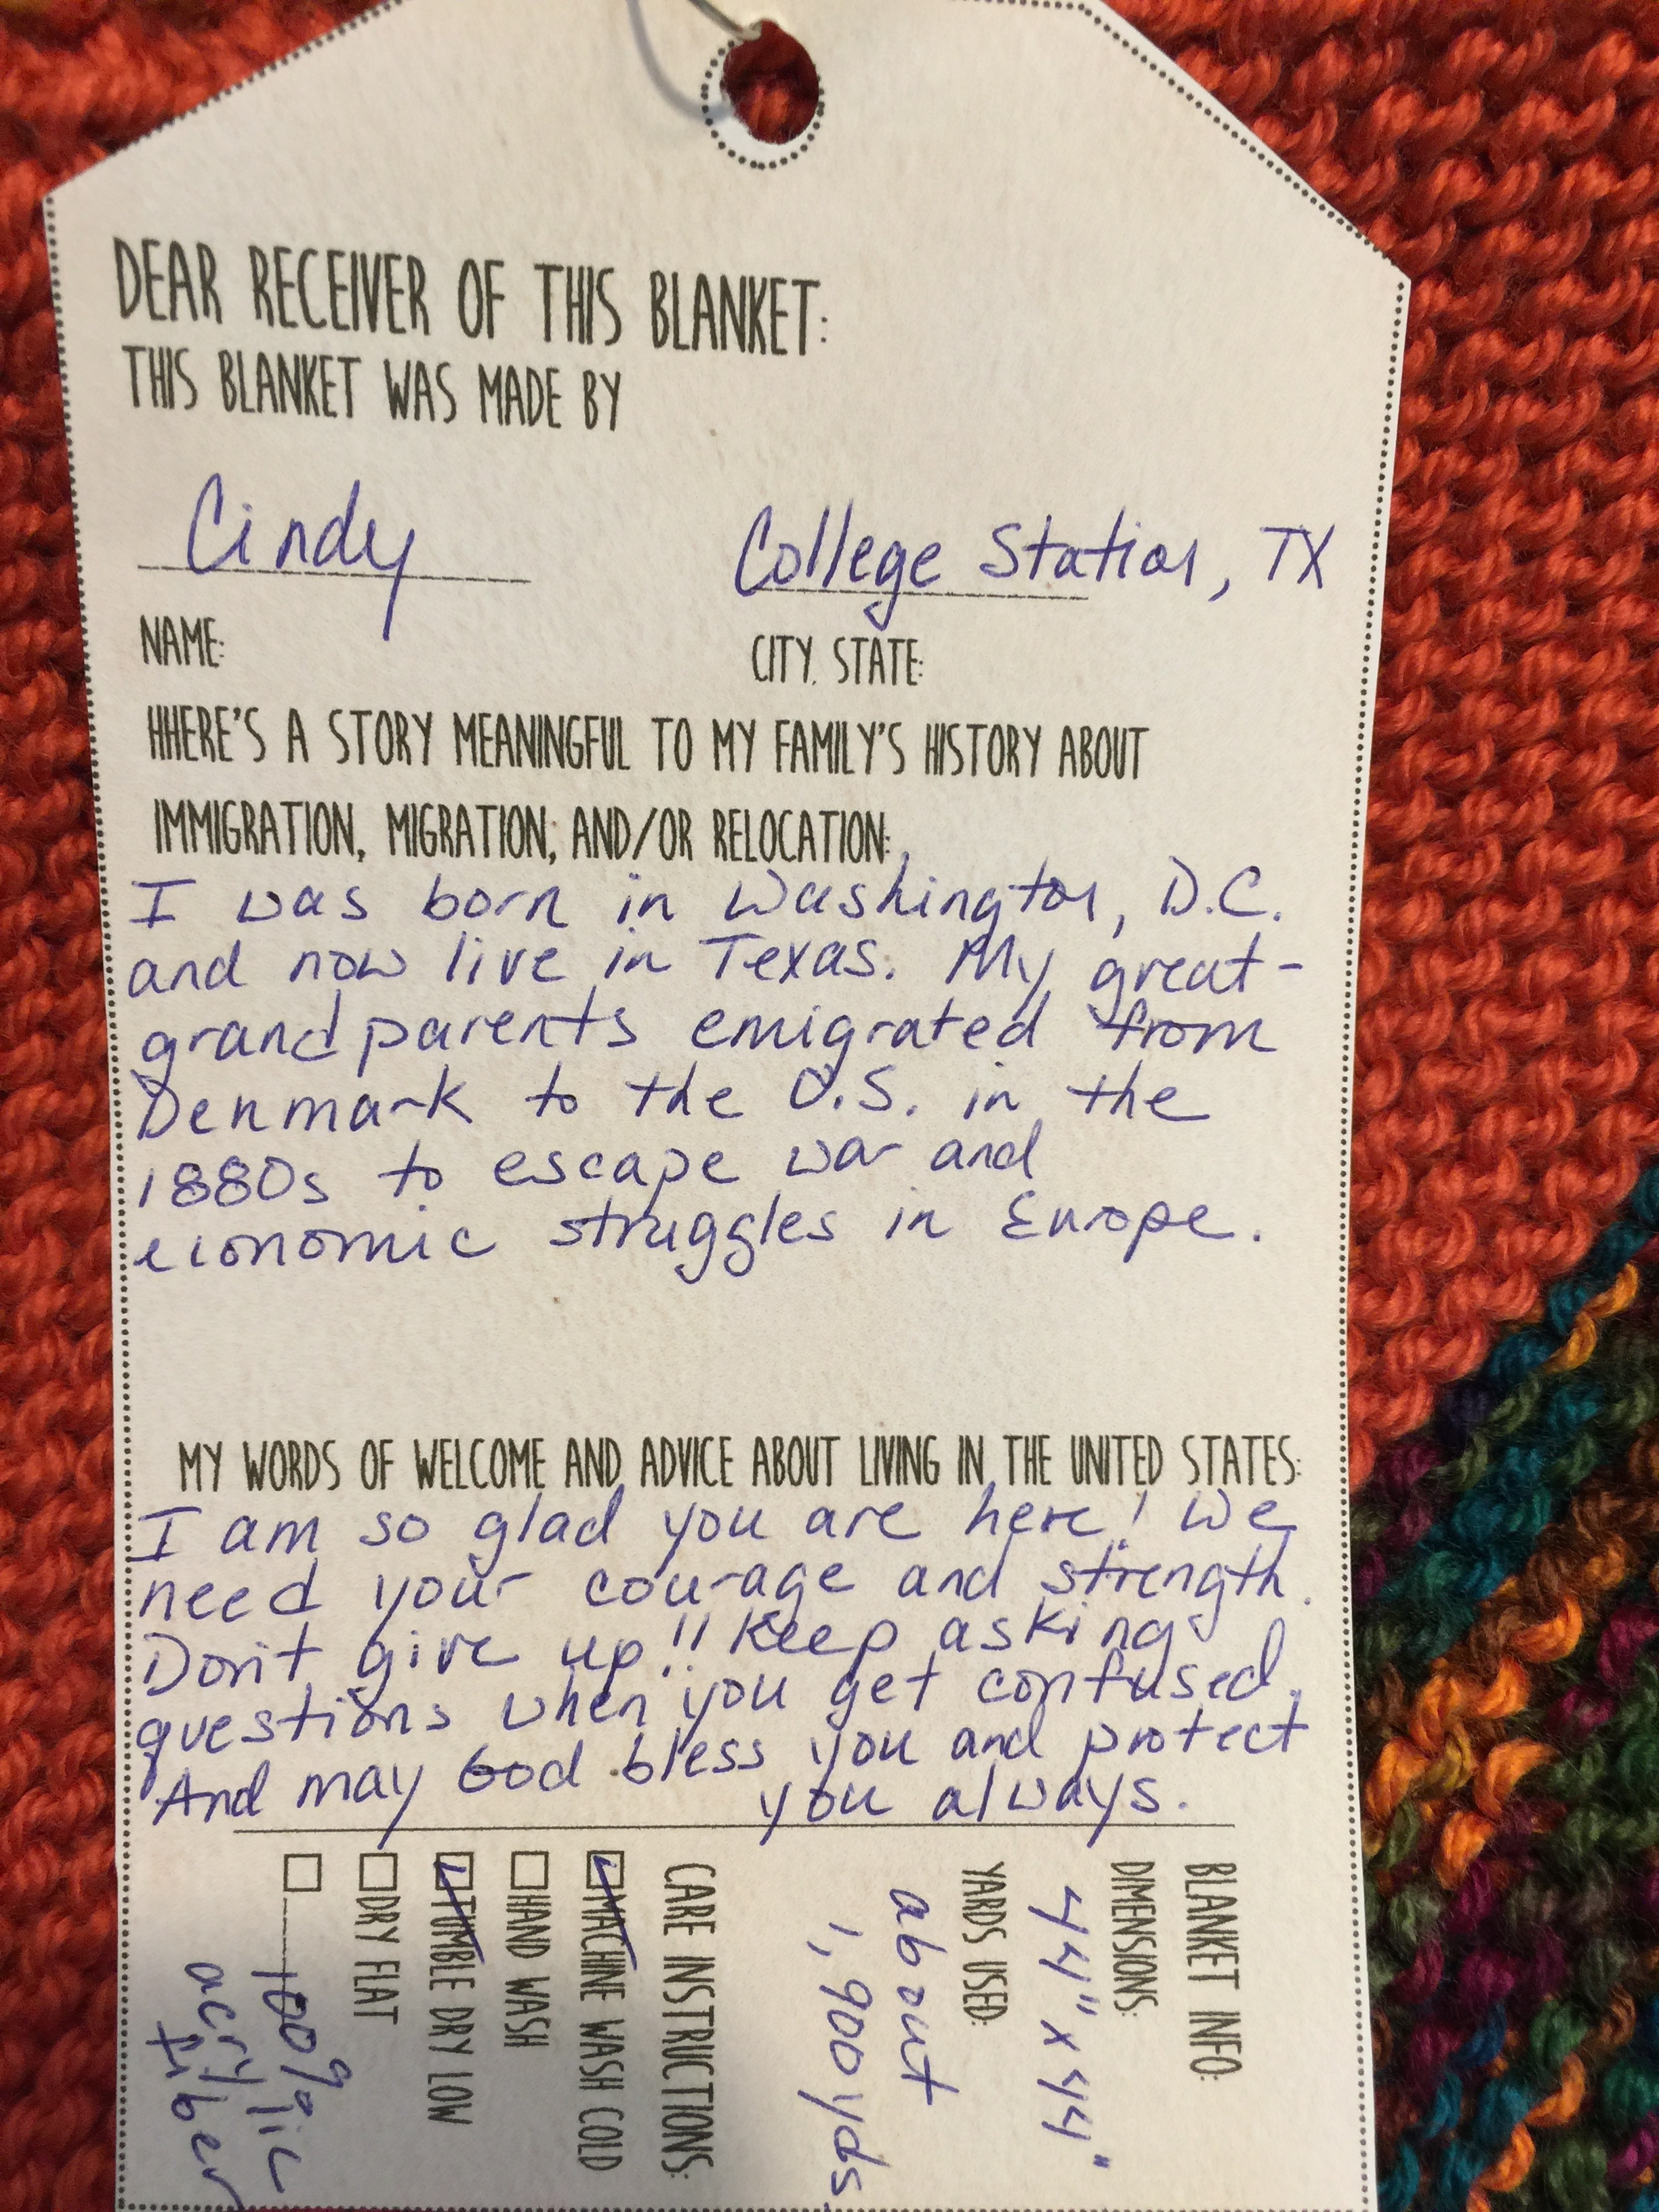 DEAR RECEIVER OF THIS BLANKET:
THIS BLANKET WAS MADE BY
Cindy College Station, TX
NAME: CITY, STATE:
HHERE'S A STORY MEANINGFUL TO MY FAMILY'S HISTORY ABOUT
IMMIGRATION, MIGRATION, AND/OR RELOCATION:
I was born in Washington, D.C.
and now live in Texas. My great-
grandparents emigrated from
Denmark to the U.S. in the
1880s to escape war and
economic struggles in Europe.
MY WORDS OF WELCOME AND ADVICE ABOUT LIVING IN THE UNITED STATES:
I am so glad you are here! We
need your courage and strength.
Don't give up!! Keep asking
questions when you get confused.
And may God bless you and protect
you always.
BLANKET INFO:
DIMENSIONS:
44" x 44"
YARDS USED:
about
1,900 yds
CARE INSTRUCTIONS:
MACHINE WASH COLD
HAND WASH
TUMBLE DRY LOW
DRY FLAT
100%
acrylic
fiber